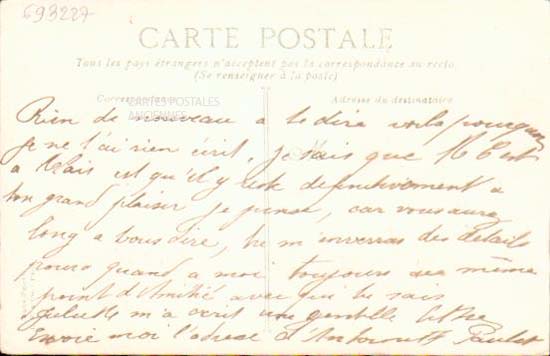 693227
CARTE POSTALE
Tous les pays étrangers n'acceptent pas la correspondance au recto.
(Se renseigner à la poste)
Correspondance
CARTES POSTALES
ANCIENNES
Adresse du destinataire
Rien de nouveau a te dire voila pourquoi
je ne t'ai rien écrit, je sais que M est
a et qu'il y reste definitivement a
ton grand plaisir je pense, car vous aurez
long a vous dire, tu m'enverras des details
pour quand a moi toujours au même
point d'Amitié avec qui tu sais
m'a écrit une gentille lettre
Envoie moi l'adresse d' Paulet